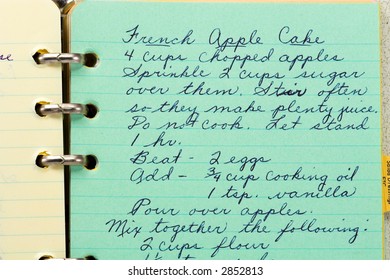 French Apple Cake
4 cups chopped apples
Sprinkle 2 cups sugar
over them. Stir often
so they make plenty juice.
Do not cook. Let stand
1 hr.
Beat - 2 eggs
Add - ¾ cup cooking oil
1 tsp. vanilla
Pour over apples.
Mix together the following:
2 cups flour
www.shutterstock.com · 2852813